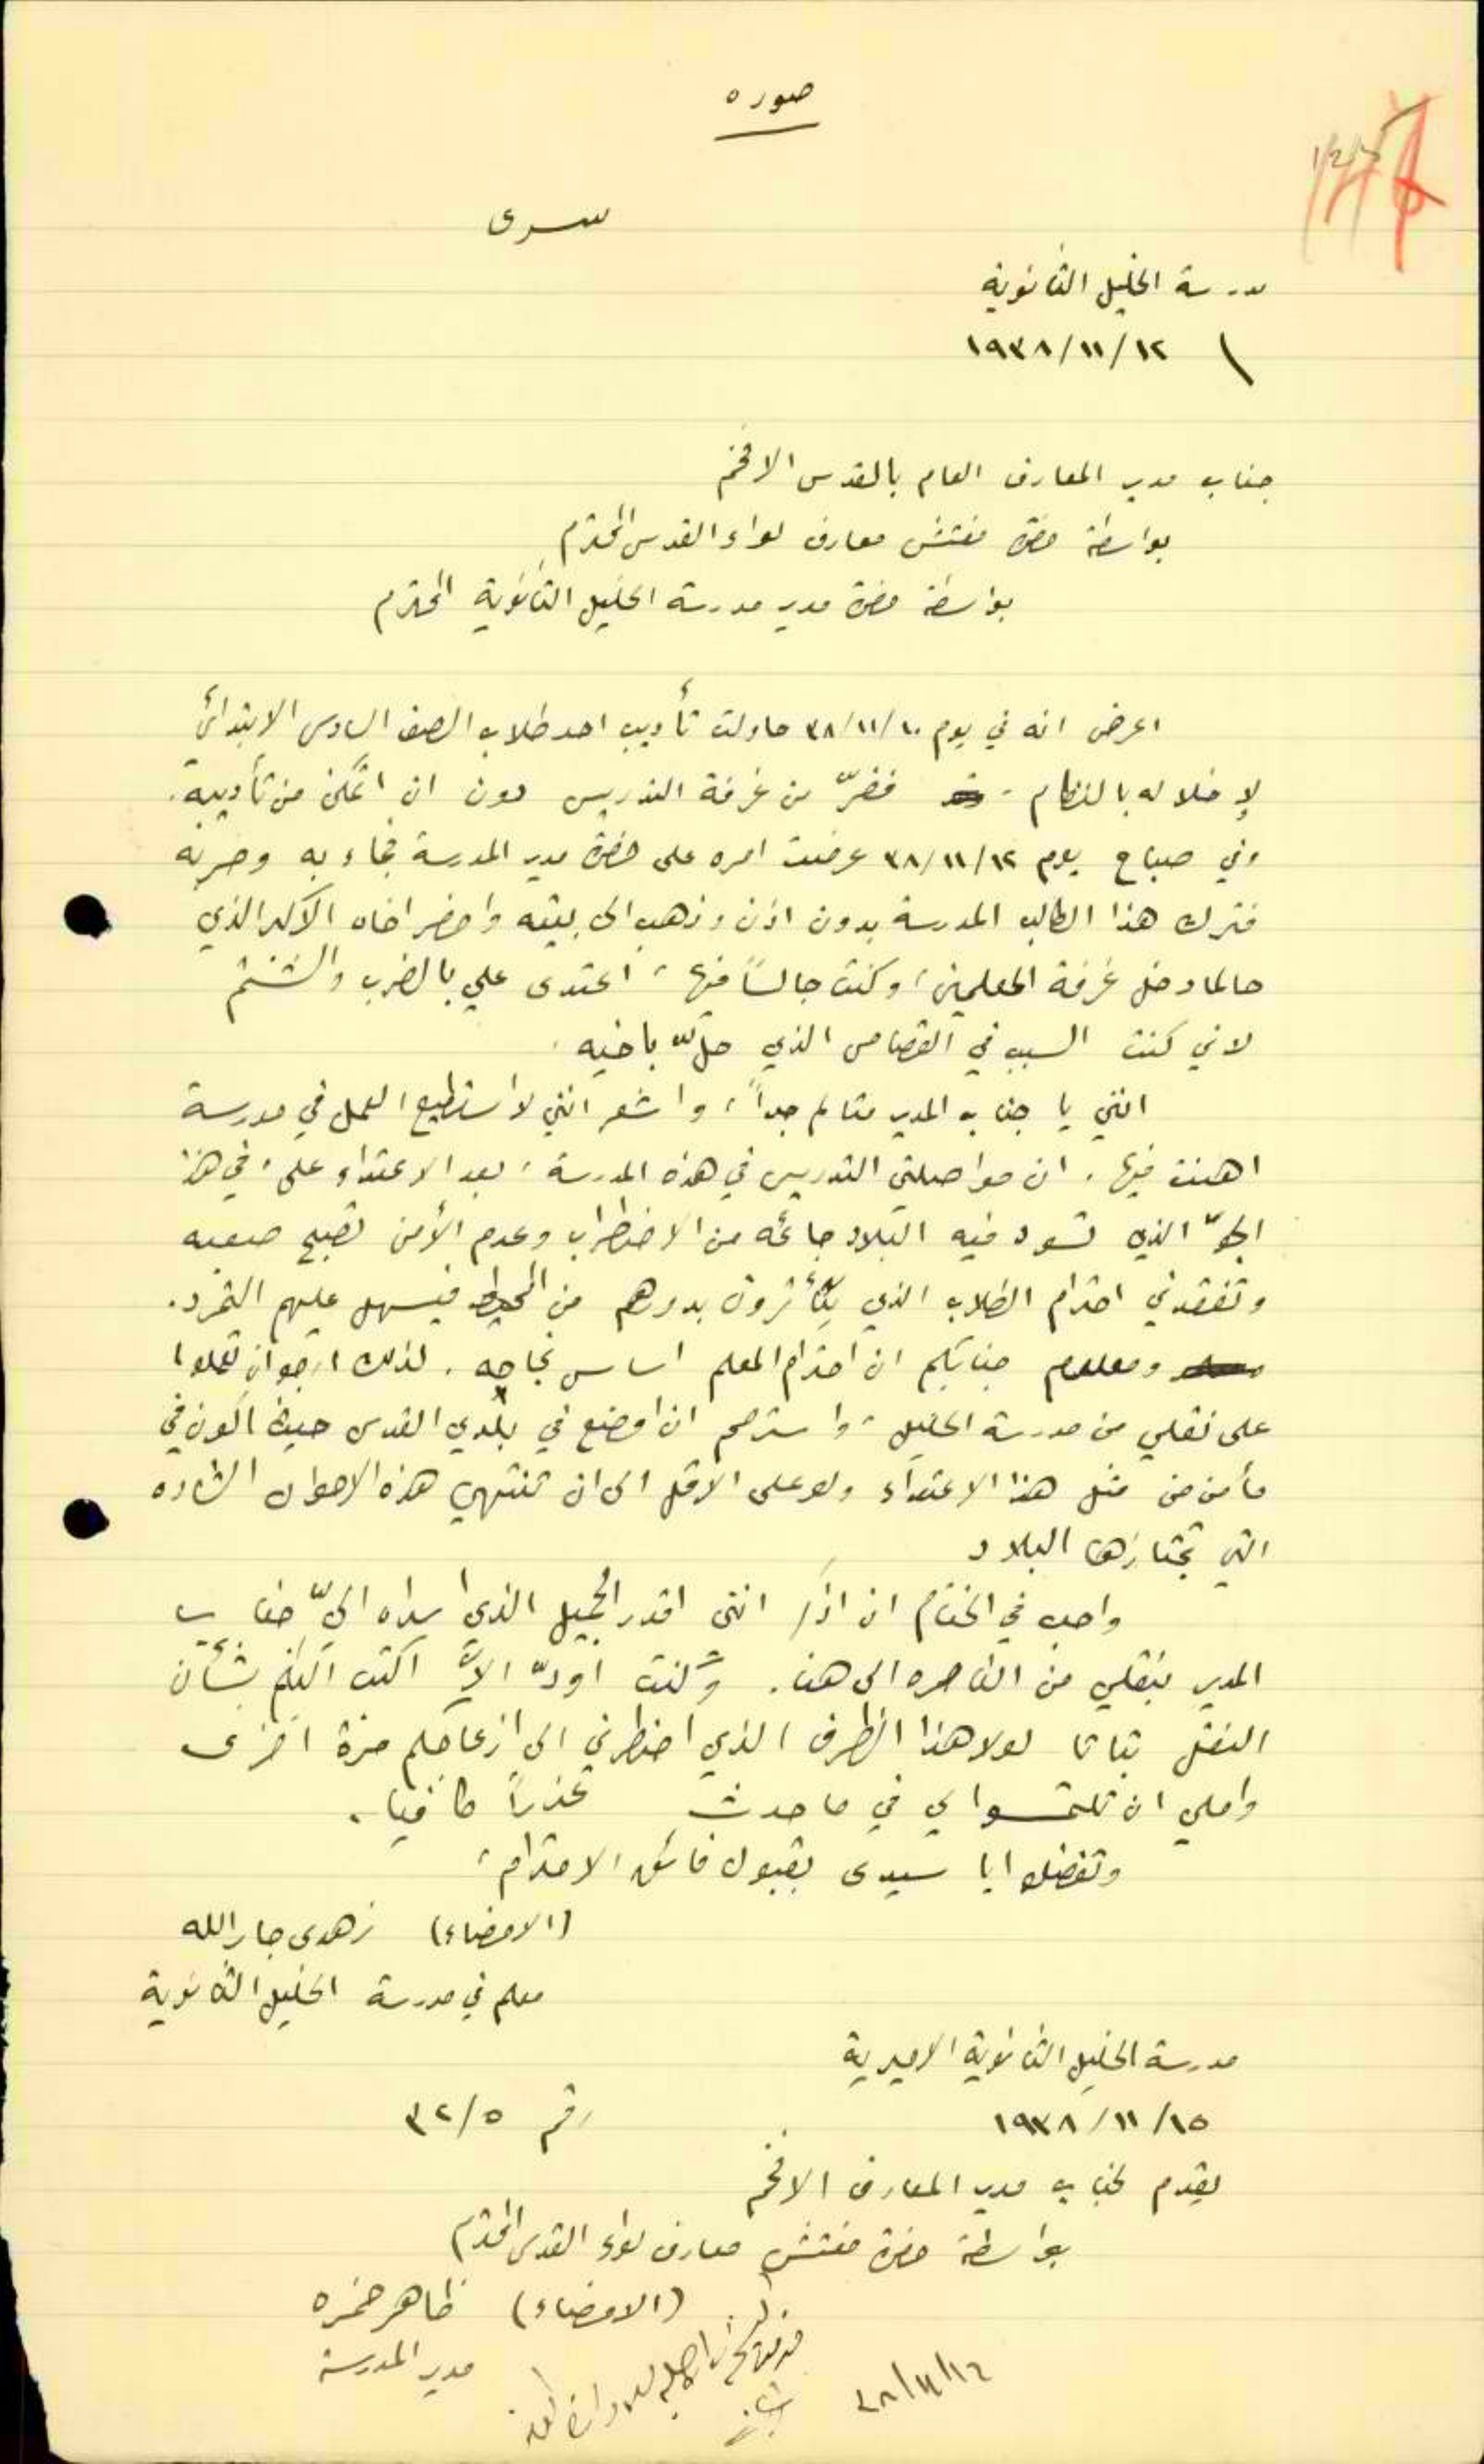 صوره
سرى
مدرسة الخليل الثانوية
١٩٣٨/١١/١٢
جناب مدير المعارف العام بالقدس الافخم
بواسطة حضرة مفتش معارف لواء القدس المحترم
بواسطة حضرة مدير مدرسة الخليل الثانوية المحترم
اعرض انه في يوم ٣٨/١١/١٠ حاولت تأديب احد طلاب الصف السادس الابتدائي
لإخلاله بالنظام، ففرّ من غرفة التدريس دون ان اتمكن من تأديبه.
وفي صباح يوم ٣٨/١١/١٢ عرضت امره على حضرة مدير المدرسة فجاء به وضربه
فترك هذا الطالب المدرسة بدون اذن وذهب الى بيته واحضر اخاه الاكبر الذي
حالما دخل غرفة المعلمين، وكنت جالساً فيها، اعتدى علي بالضرب والشتم
لاني كنت السبب في القصاص الذي حلّ باخيه.
انني يا جناب المدير متالم جداً، واشعر انني لا استطيع العمل في مدرسة
اهنت فيها. ان مواصلتي التدريس في هذه المدرسة، بعد الاعتداء علي، في هذا
الجوّ الذي تسود فيه البلاد جائحه من الاضطراب وعدم الأمن تصبح صعبه
وتفقدني احترام الطلاب الذي يتأثرون بدورهم من المحيط فيسهل عليهم التمرد.
ومعلوم جنابكم ان احترام المعلم اساس نجاحه. لذلك ارجو ان تعملوا
على نقلي من مدرسة الخليل، واسترحم ان اوضع في بلدي القدس حيث اكون في
مأمن من مثل هذا الاعتداء ولو على الاقل الى ان تنتهي هذه الاحوال الشاذه
التي تجتازها البلاد
واحب في الختام ان اذكر انني اقدر الجميل الذي اسداه اليّ جناب
المدير بنقلي من الناصره الى هنا. وكنت اودّ الاّ اكتب اليكم بشأن
النقل بتاتا لولا هذا الظرف الذي اضطرني الى ازعاجكم مرة اخرى
واملي ان تلتمسوا لي في ما حدث عذراً كافيا.
وتفضلوا يا سيدى بقبول فائق الاحترام،
(الامضاء) زهدى جارالله
معلم في مدرسة الخليل الثانوية
مدرسة الخليل الثانوية الاميرية
١٩٣٨/١١/١٥ رقم ٣٢/٥
يقدم لجناب مدير المعارف الافخم
بواسطة حضرة مفتش معارف لواء القدس المحترم
(الامضاء) ظاهر خمره
مدير المدرسة
٣٨/١١/١٦